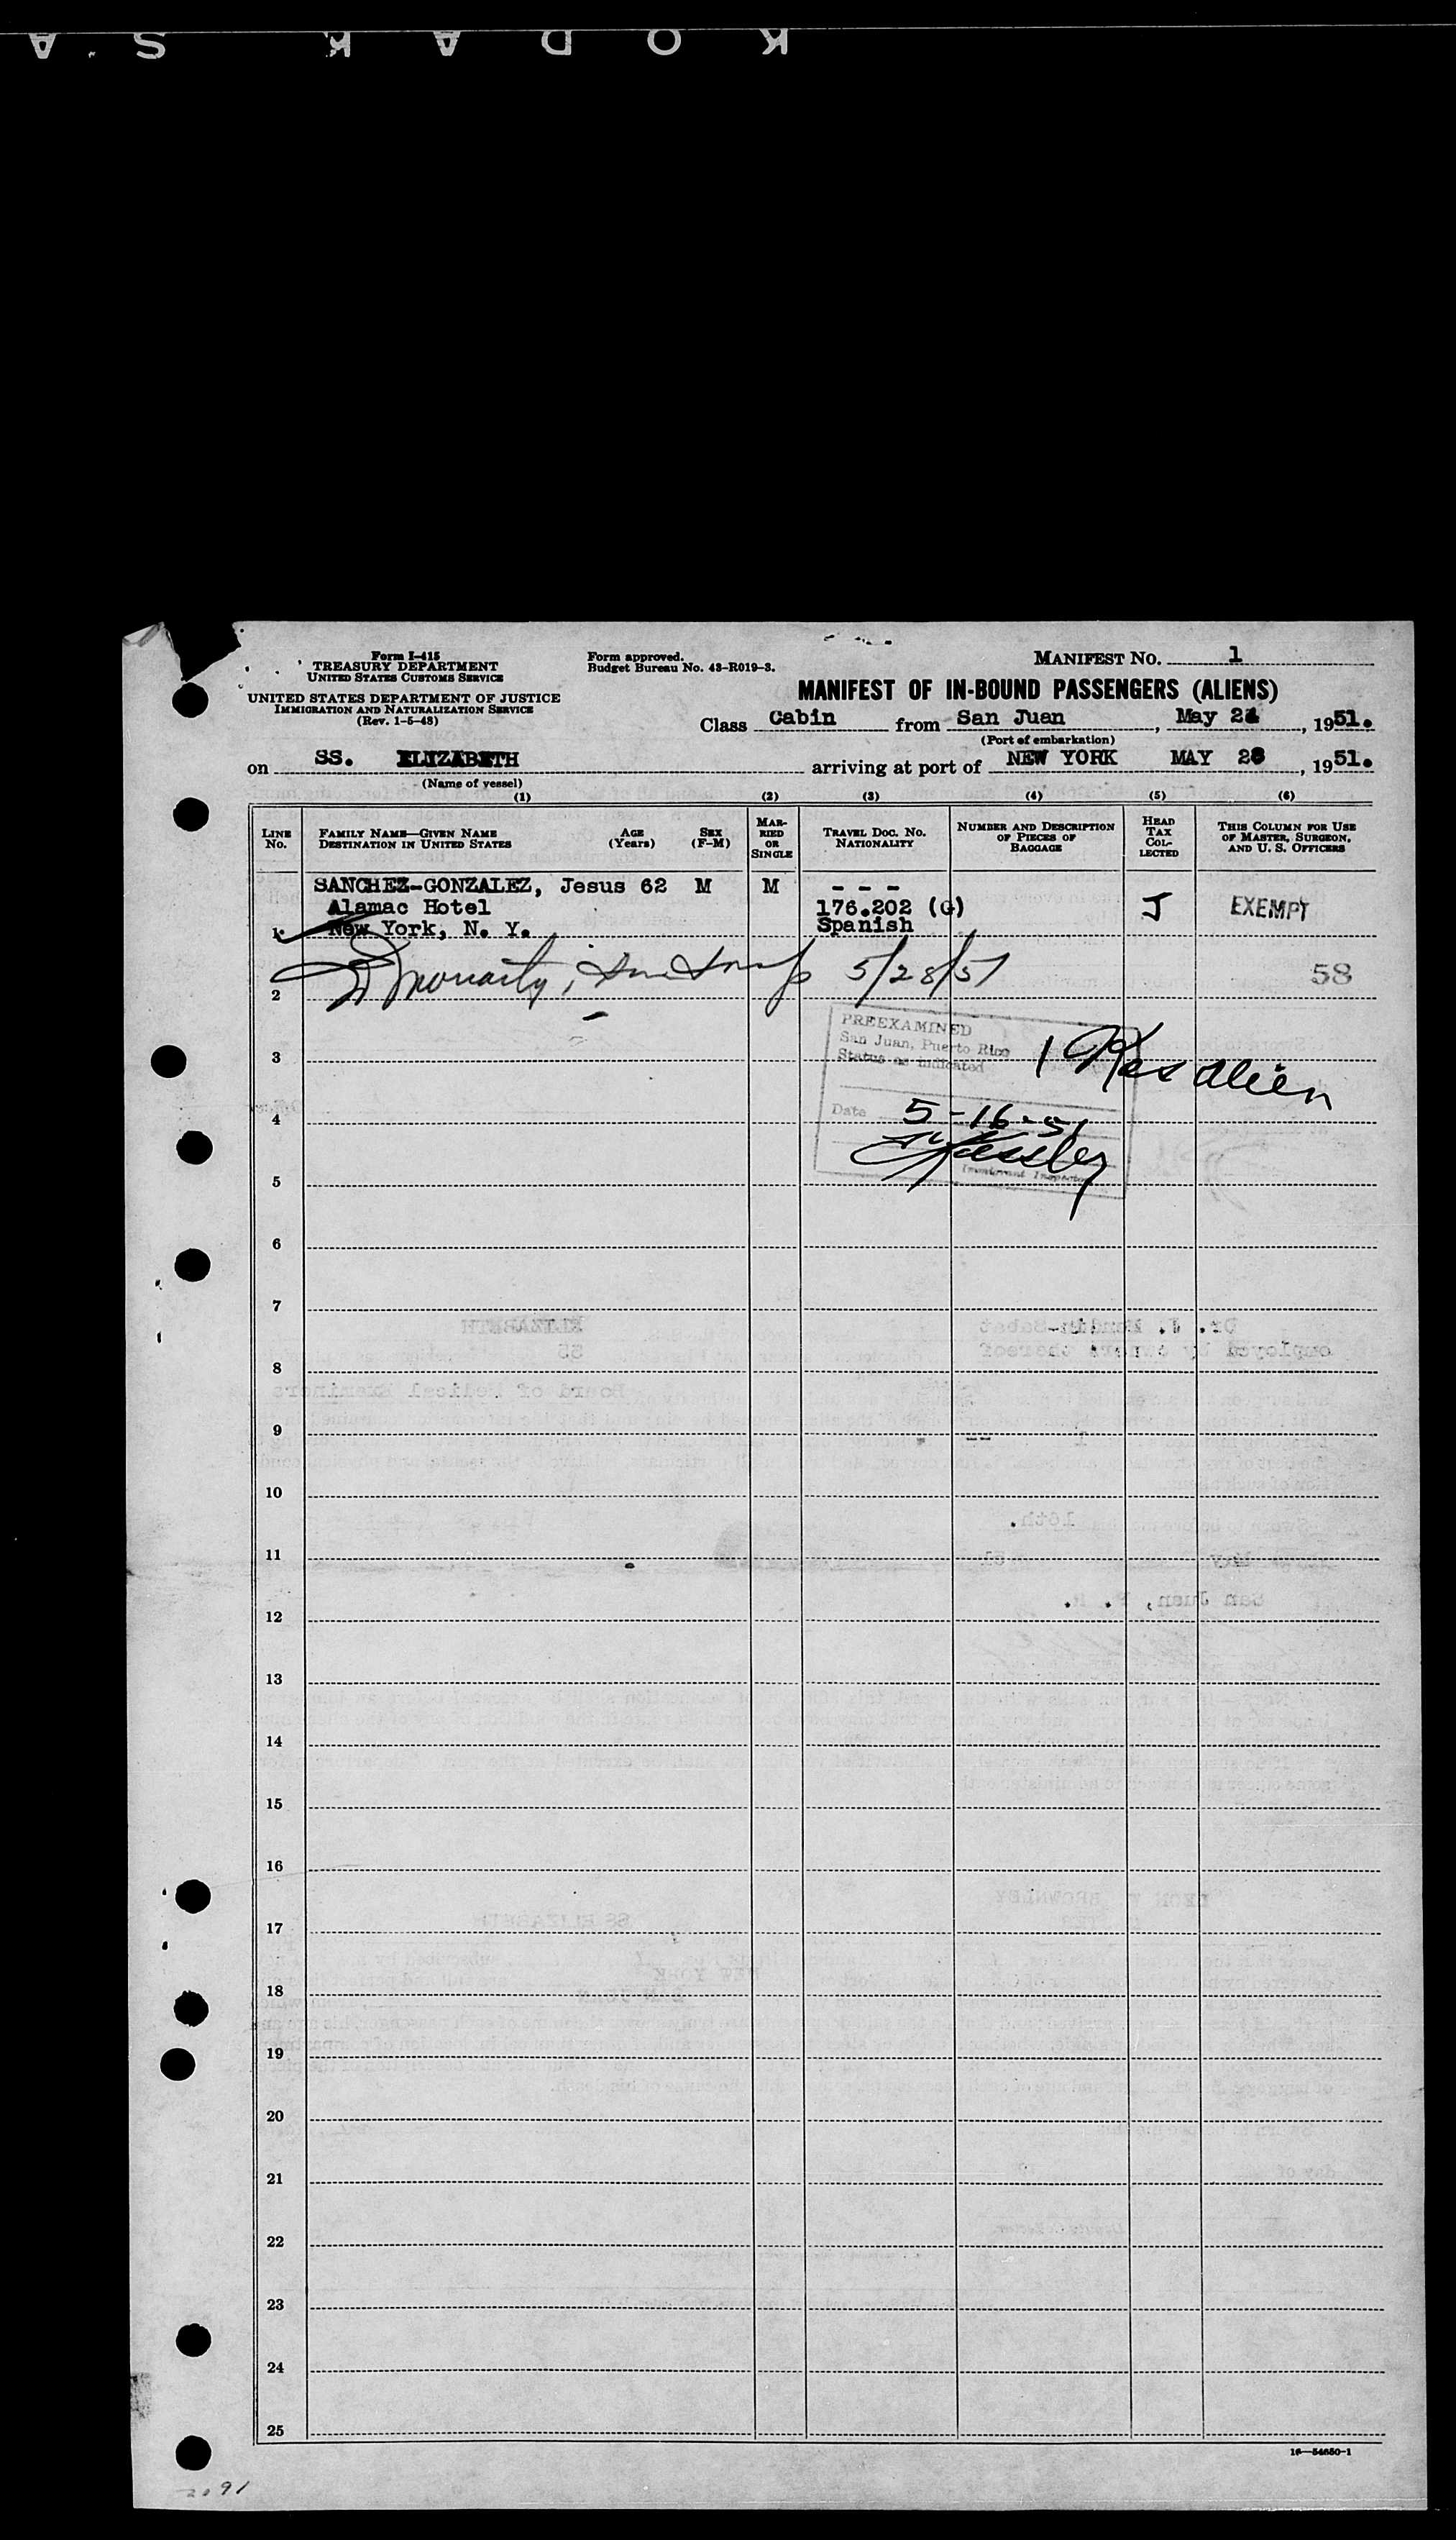 KODAK S A
Form I-415
TREASURY DEPARTMENT
UNITED STATES CUSTOMS SERVICE
UNITED STATES DEPARTMENT OF JUSTICE
IMMIGRATION AND NATURALIZATION SERVICE
(Rev. 1-5-48)
Form approved.
Budget Bureau No. 43-R019-3.
MANIFEST NO. 1
MANIFEST OF IN-BOUND PASSENGERS (ALIENS)
Class Cabin from San Juan, May 24, 1951.
(Port of embarkation)
on SS. ELIZABETH arriving at port of NEW YORK MAY 28, 1951.
(Name of vessel)
(1) (2) (3) (4) (5) (6)
LINE NO. FAMILY NAME—GIVEN NAME DESTINATION IN UNITED STATES AGE (Years) SEX (F-M) MARRIED OR SINGLE TRAVEL DOC. NO. NATIONALITY NUMBER AND DESCRIPTION OF PIECES OF BAGGAGE HEAD TAX COLLECTED THIS COLUMN FOR USE OF MASTER, SURGEON, AND U. S. OFFICERS
SANCHEZ-GONZALEZ, Jesus 62 M M - - -
Alamac Hotel 176.202 (G) J EXEMPT
1 New York, N. Y. Spanish
Moriarty, 5/28/51 58
2
PREEXAMINED
San Juan, Puerto Rico
Status as indicated
1 Res alien
3
Date 5-16-51
4
Immigrant Inspector
5
6
7
8
9
10
11
12
13
14
15
16
17
18
19
20
21
22
23
24
25
16—54650-1
2091